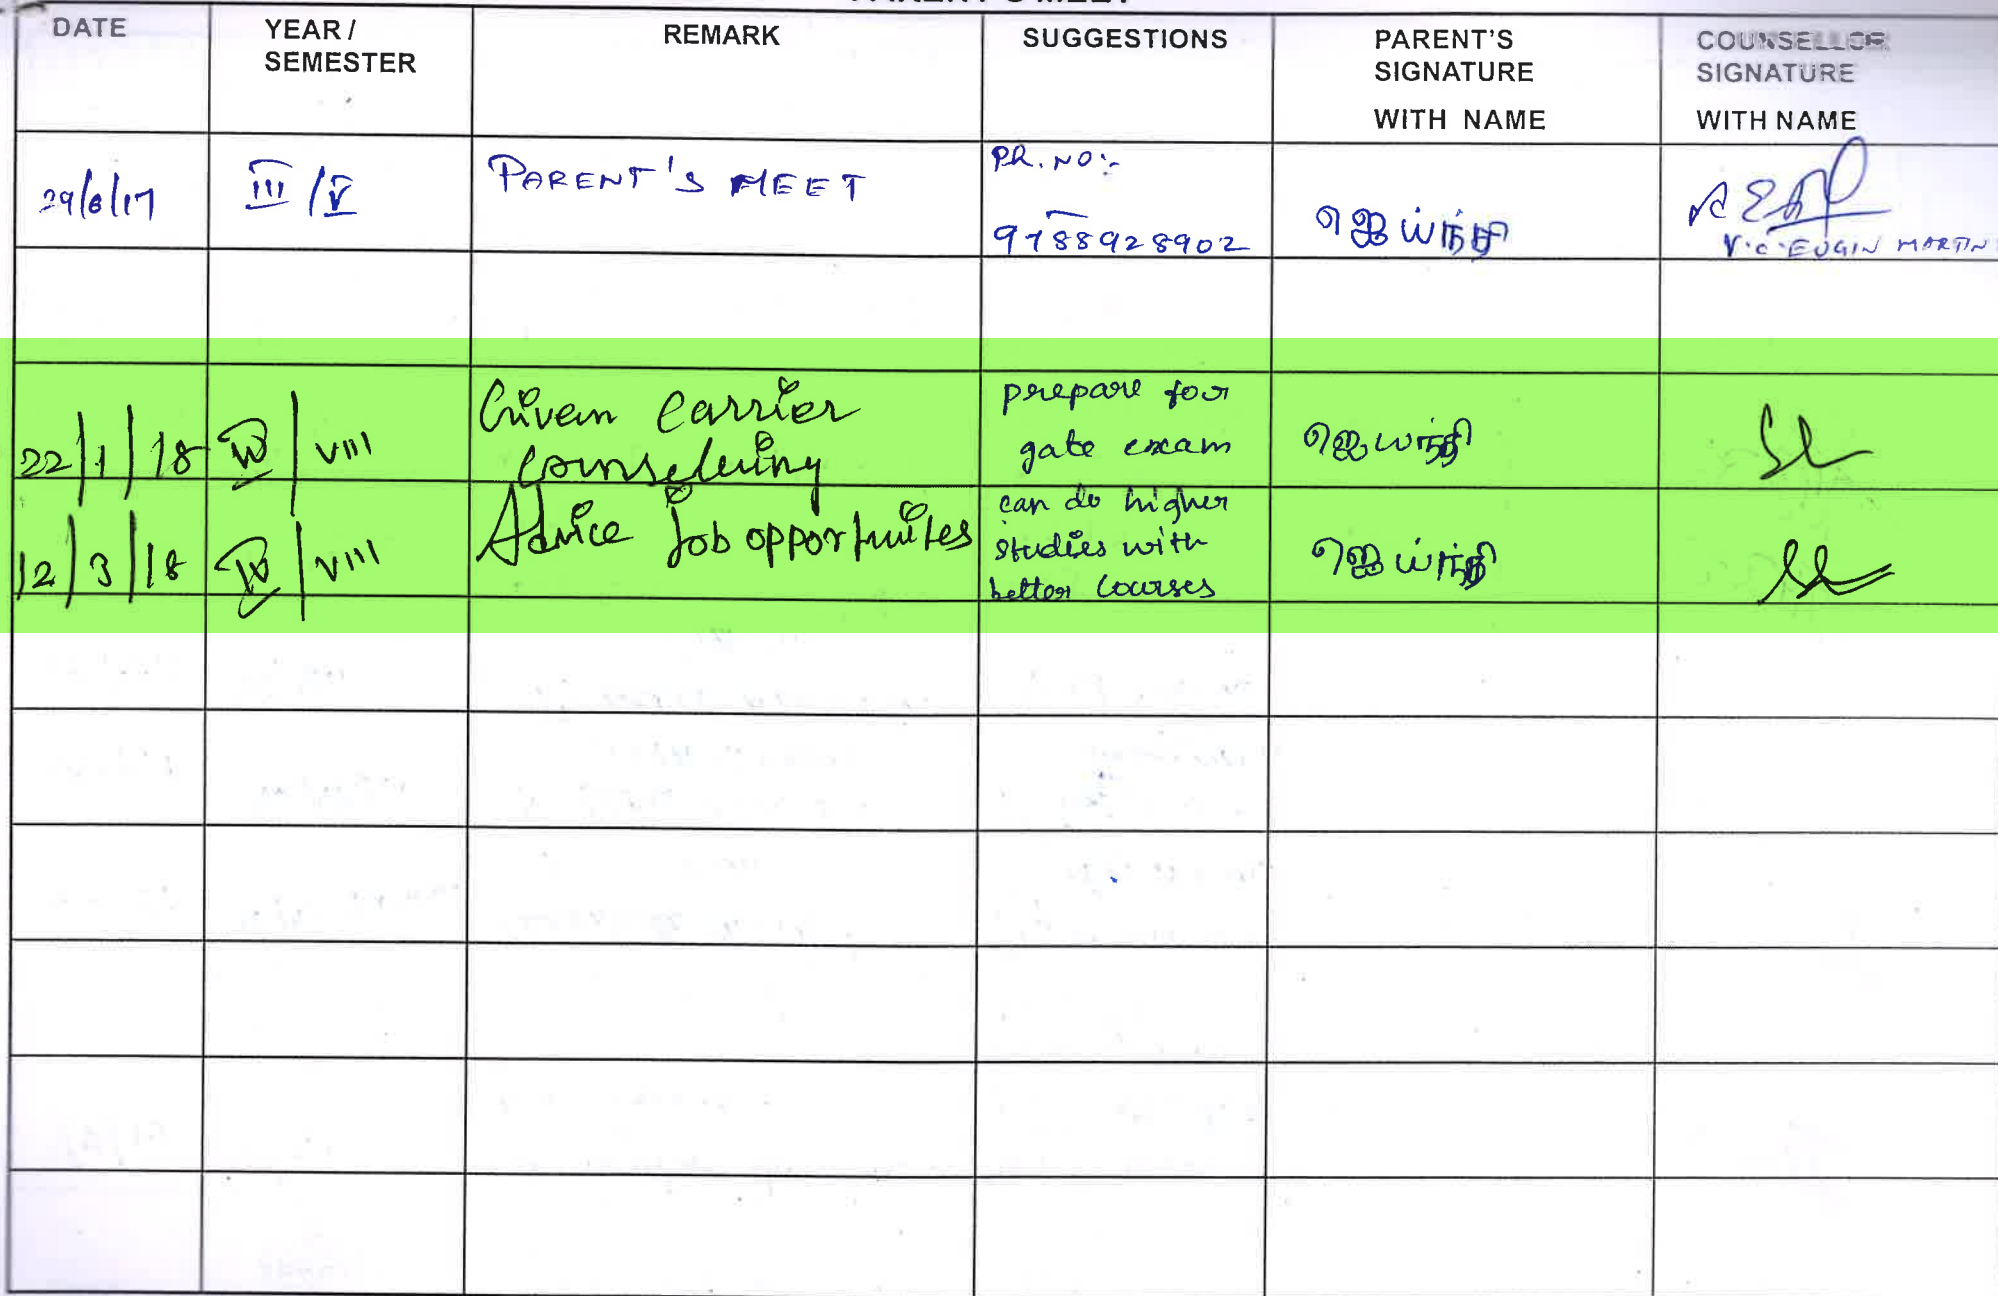 PARENT'S MEET
DATE YEAR / SEMESTER REMARK SUGGESTIONS PARENT'S SIGNATURE WITH NAME COUNSELLOR SIGNATURE WITH NAME
29/6/17 III / V PARENT'S MEET PR. NO:-
9788928902 ஜெயந்தி
V.C. EUGIN MARTIN
22/1/18 IV / VIII Given carrier
counseluing
prepare for
gate exam
ஜெயந்தி
12/3/18 IV / VIII Advice Job opportuites
can do higher
studies with
better courses
ஜெயந்தி